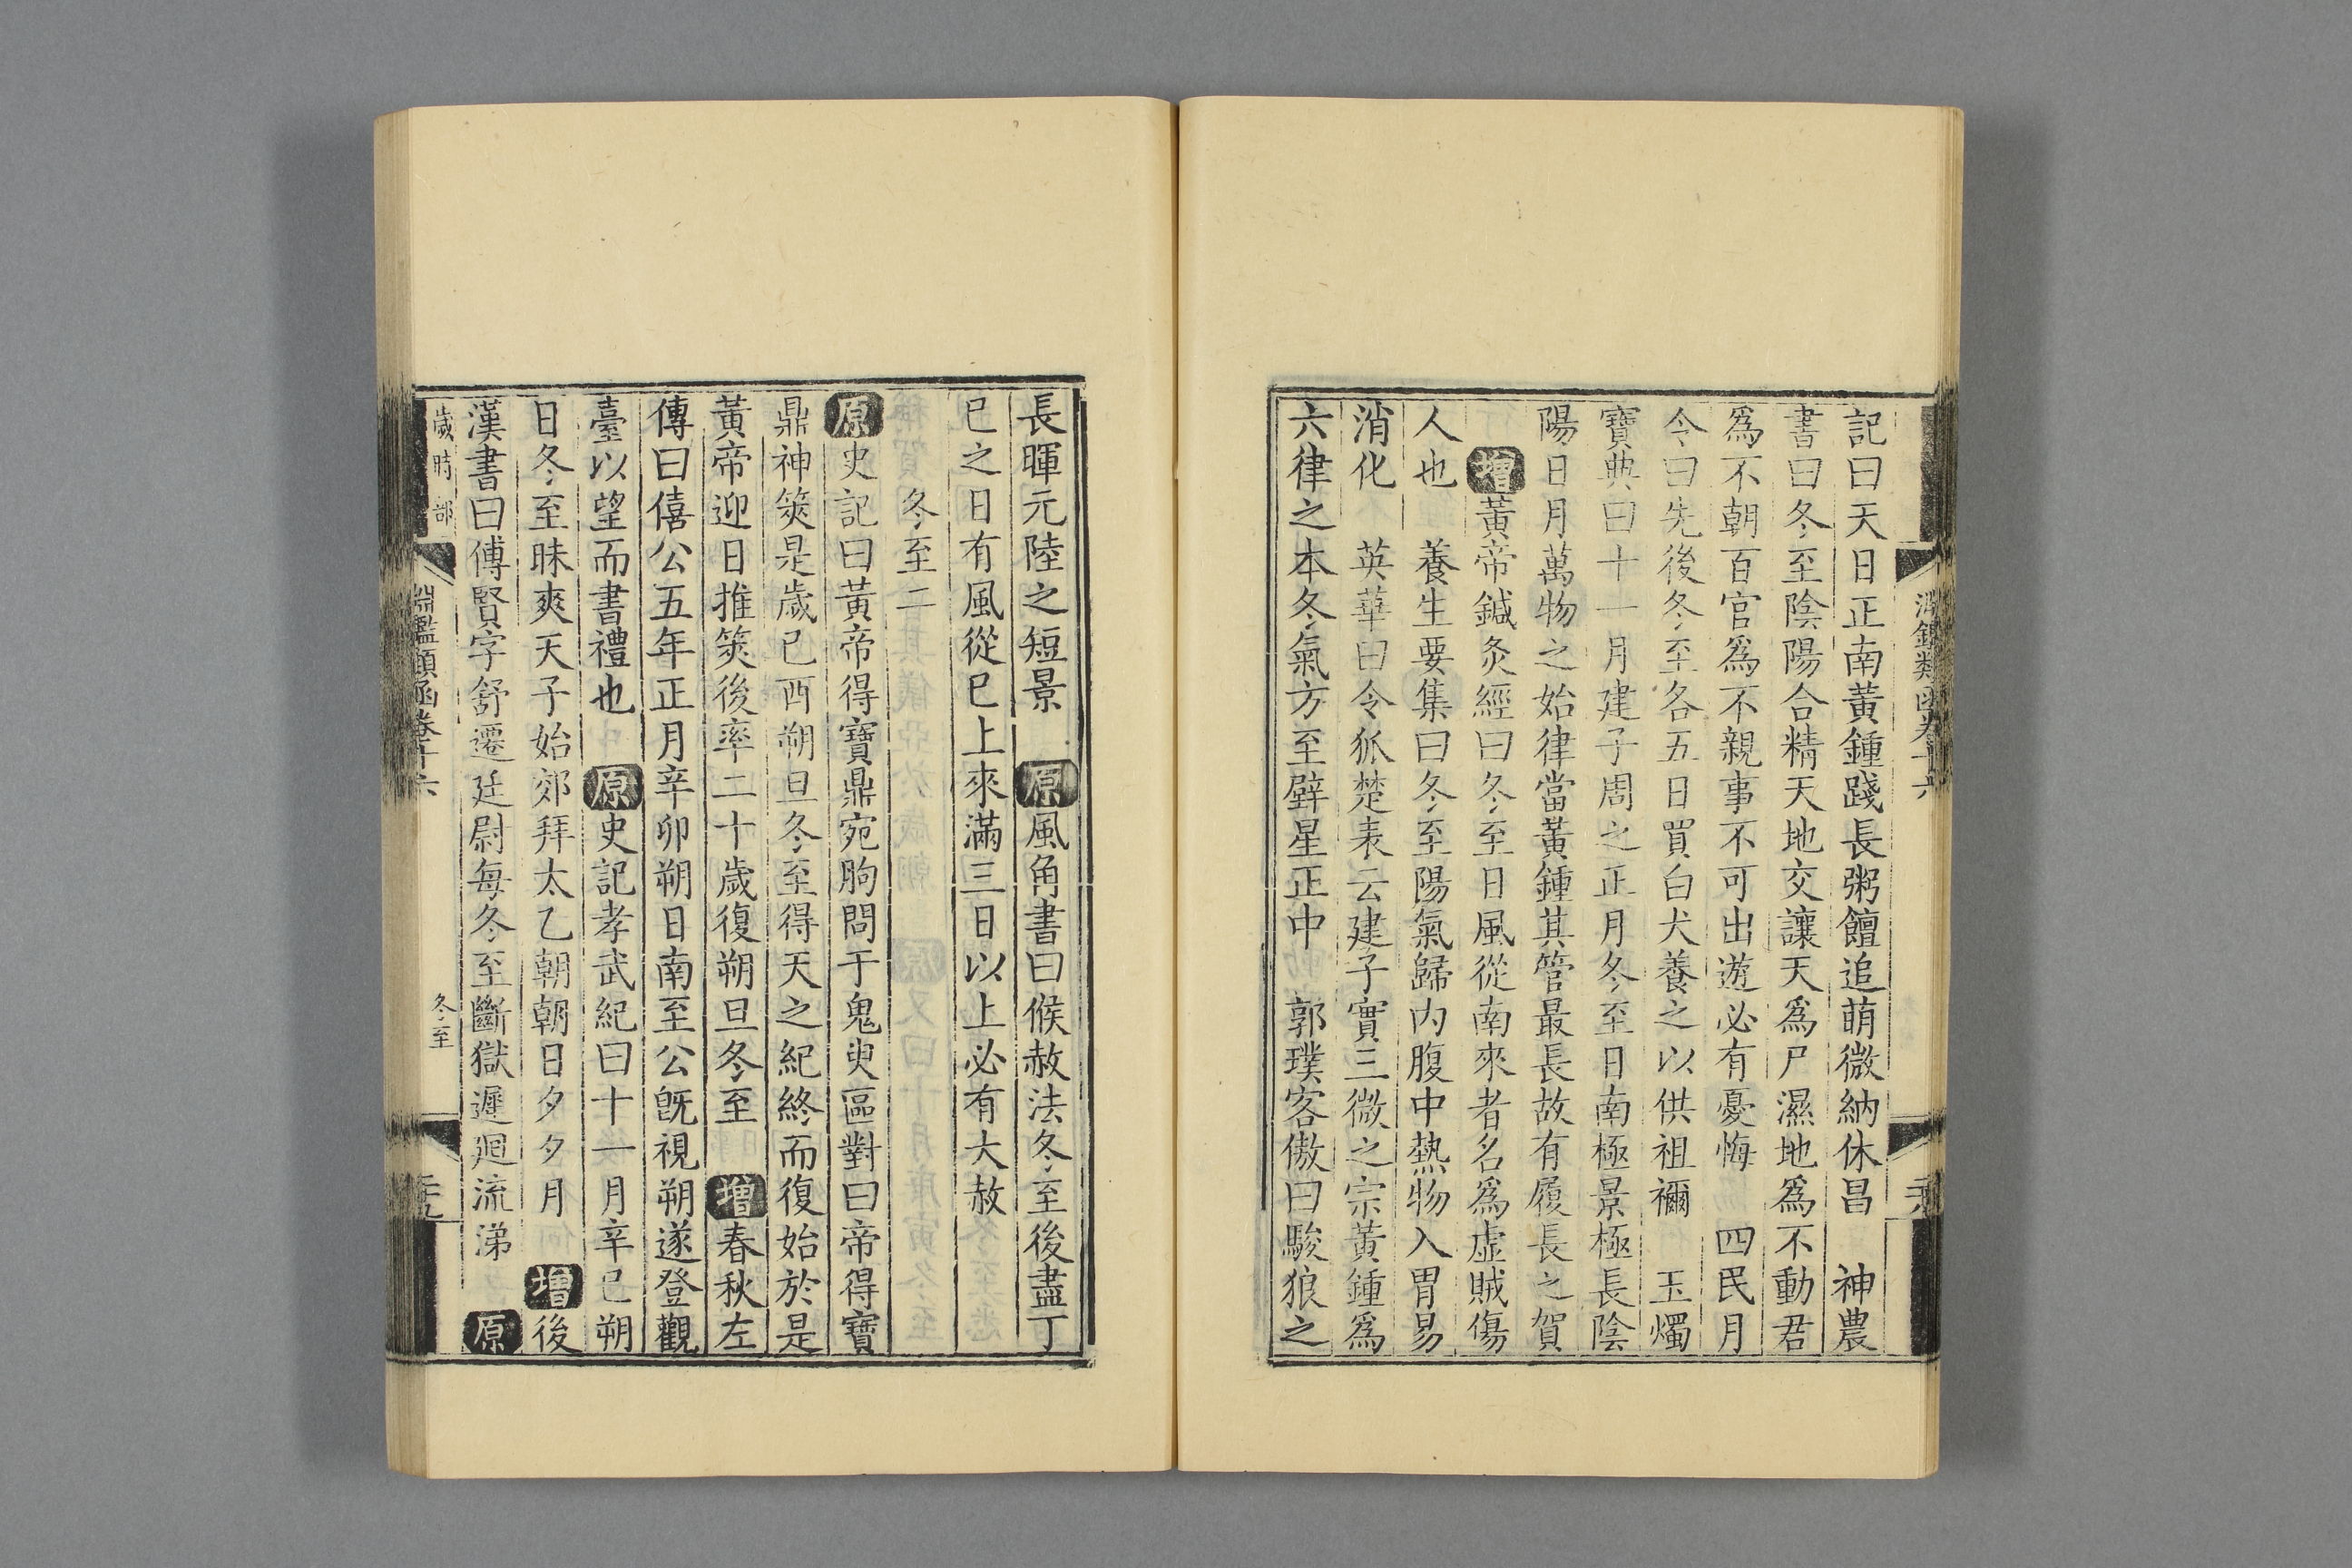 記曰天日正南黃鍾踐長粥饘追萌微納休昌　神農
書曰冬至陰陽合精天地交讓天爲尸濕地爲不動君
爲不朝百官爲不親事不可出遊必有憂悔　四民月
令曰先後冬至各五日買白犬養之以供祖禰　玉燭
寶典曰十一月建子周之正月冬至日南極景極長陰
陽日月萬物之始律當黃鍾其管最長故有履長之賀
增黃帝鍼灸經曰冬至日風從南來者名爲虛賊傷
人也　養生要集曰冬至陽氣歸內腹中熱物入胃易
消化　英華曰令狐楚表云建子實三微之宗黃鍾爲
六律之本冬氣方至壁星正中　郭璞客傲曰駿狼之
長暉元陸之短景　原風角書曰候赦法冬至後盡丁
巳之日有風從巳上來滿三日以上必有大赦
冬至二
原史記曰黃帝得寶鼎宛朐問于鬼臾區對曰帝得寶
鼎神筴是歲已酉朔旦冬至得天之紀終而復始於是
黃帝迎日推筴後率二十歲復朔旦冬至　增春秋左
傳曰僖公五年正月辛卯朔日南至公旣視朔遂登觀
臺以望而書禮也　原史記孝武紀曰十一月辛巳朔
日冬至昧爽天子始郊拜太乙朝朝日夕夕月　增後
漢書曰傅賢字舒遷廷尉每冬至斷獄遲迴流涕　原
歲時部
淵鑑類函卷十六
冬至